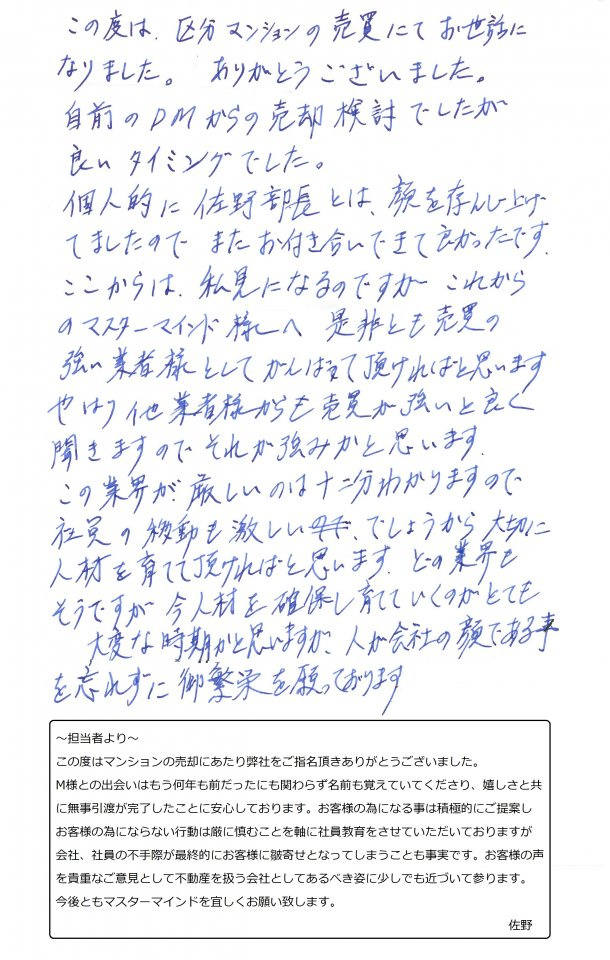 この度は、区分マンションの売買にてお世話に
なりました。 ありがとうございました。
自前のDMからの売却検討でしたが
良いタイミングでした。
個人的に佐野部長とは、顔を存んじ上げ
てましたので またお付き合いできて良かったです.
ここからは、私見になるのですが これから
のマスターマインド様へ 是非とも売買の
強い業者様としてがんばって頂ければと思います
やはり他業者様からも売買が強いと良く
聞きますので それが強みかと思います.
この業界が、厳しいのは十二分わかりますので
社員の移動も激しい、でしょうから大切に
人材を育てて頂ければと思います. どの業界も
そうですが 今人材を確保し育てていくのがとても
大変な時期かと思いますが、人が会社の顔である事
を忘れずに御繁栄を願っております
～担当者より～
この度はマンションの売却にあたり弊社をご指名頂きありがとうございました。
M様との出会いはもう何年も前だったにも関わらず名前も覚えていてくださり、嬉しさと共
に無事引渡が完了したことに安心しております。お客様の為になる事は積極的にご提案し
お客様の為にならない行動は厳に慎むことを軸に社員教育をさせていただいておりますが
会社、社員の不手際が最終的にお客様に皺寄せとなってしまうことも事実です。お客様の声
を貴重なご意見として不動産を扱う会社としてあるべき姿に少しでも近づいて参ります。
今後ともマスターマインドを宜しくお願い致します。
佐野